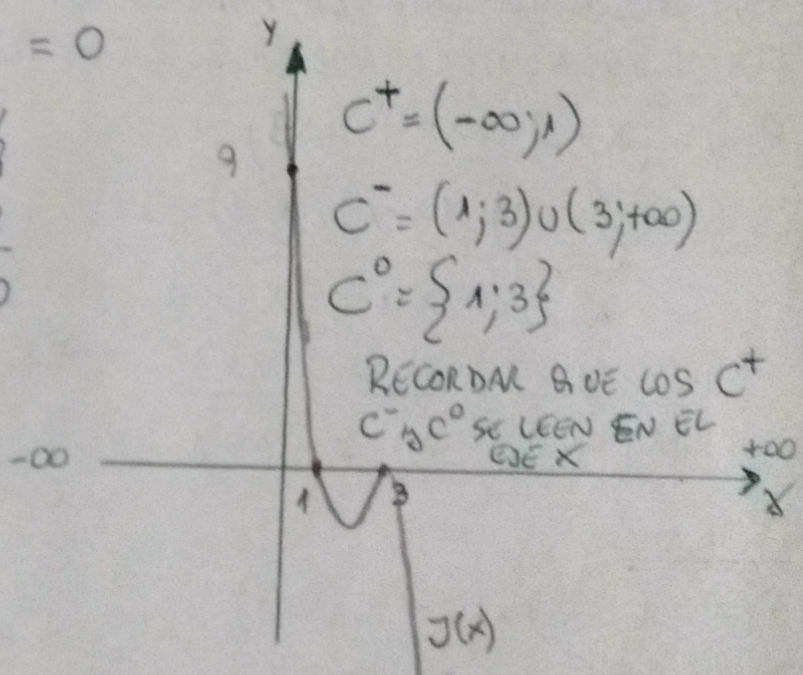 = 0
Y
C⁺ = (-∞; 1)
9
C⁻ = (1; 3) ∪ (3; +∞)
C⁰ = {1; 3}
RECORDAR QUE LOS C⁺
C⁻ y C⁰ SE LEEN EN EL
EJE X
-∞
+∞
1
3
X
J(X)